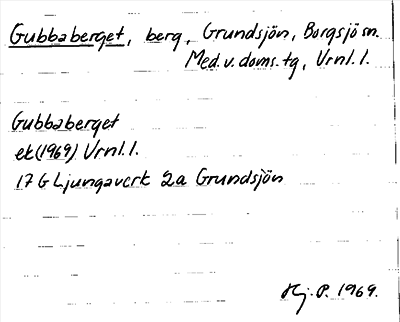 Gubbaberget, berg, Grundsjön, Borgsjö sn.
Med. v. doms. tg, Vrnl. l.
Gubbaberget
ek (1969) Vrnl. l.
17 G Ljungaverk 2a Grundsjön
Hj. P. 1969.